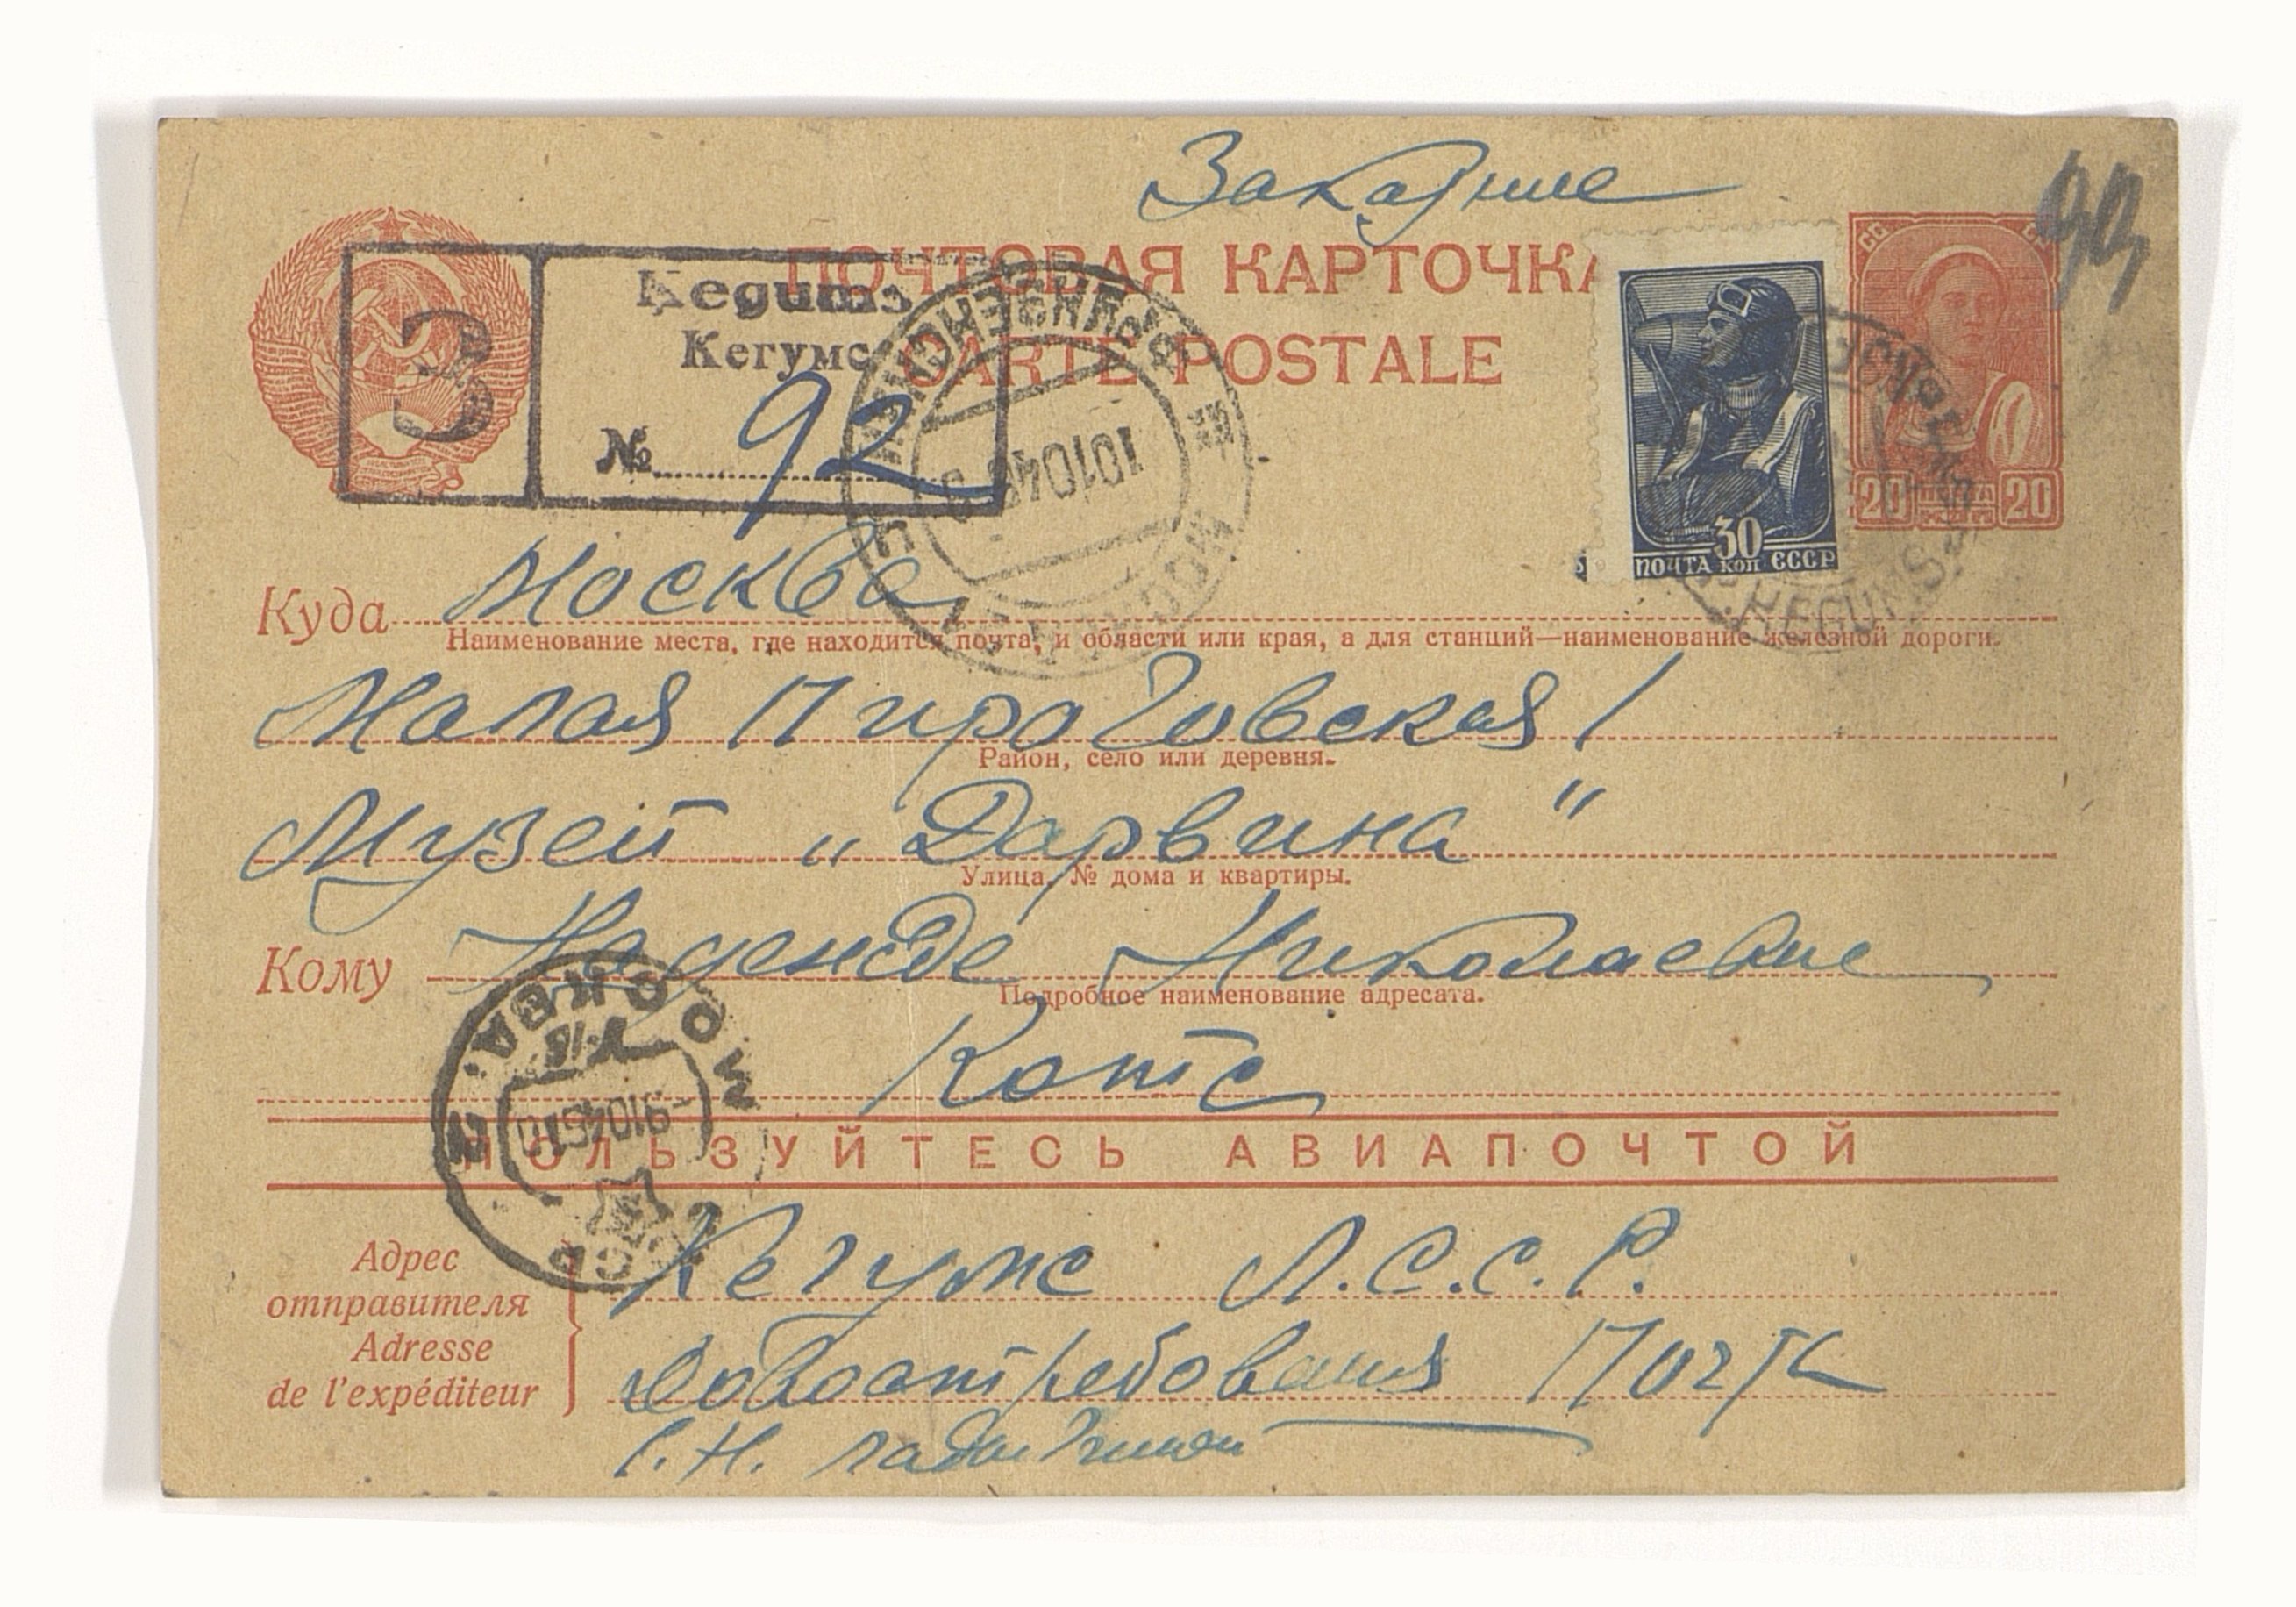 Заказное
ПОЧТОВАЯ КАРТОЧКА
CARTE POSTALE
З
Kegums
Кегумс
№ 92
МОСКВА
101045
30
ПОЧТА КОП СССР
20 ПОЧТА 20
KEGUMS
Куда Москва
Наименование места, где находится почта, и области или края, а для станций—наименование железной дороги.
Малая Пироговская 1
Район, село или деревня.
Музей „Дарвина“
Улица, № дома и квартиры.
Кому Надежде Николаевне
Подробное наименование адресата.
Котс
МОСКВА
ПОЛЬЗУЙТЕСЬ АВИАПОЧТОЙ
Адрес отправителя
Adresse de l'expéditeur
Кегумс Л.С.С.Р.
До востребования